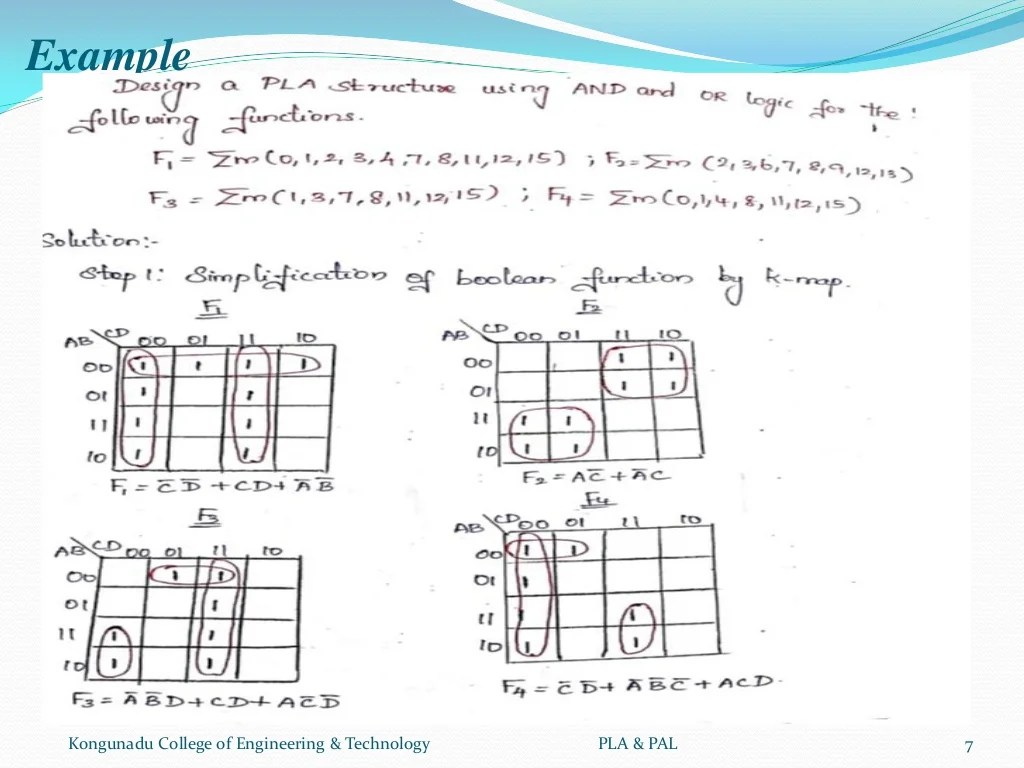 Example
Design a PLA structure using AND and OR logic for the
following functions.
F₁ = Σm(0,1,2,3,4,7,8,11,12,15) ; F₂=Σm (2,3,6,7,8,9,12,13)
F₃ = Σm(1,3,7,8,11,12,15) ; F₄ = Σm(0,1,4,8,11,12,15)
Solution:-
Step 1: Simplification of boolean function by k-map.
F₁
F₂
AB CD 00 01 11 10
00 1 1 1 1
01 1 1
11 1 1
10 1 1
F₁ = C̅ D̅ + CD + A̅ B̅
AB CD 00 01 11 10
00 1 1
01 1 1
11 1 1
10 1 1
F₂ = AC̅ + A̅C
F₃
AB CD 00 01 11 10
00 1 1
01 1
11 1 1
10 1 1
F₃ = A̅ B̅ D + CD + A C̅ D̅
F₄
AB CD 00 01 11 10
00 1 1
01 1
11 1 1
10 1 1
F₄ = C̅ D̅ + A̅ B̅ C̅ + ACD
Kongunadu College of Engineering & Technology PLA & PAL 7